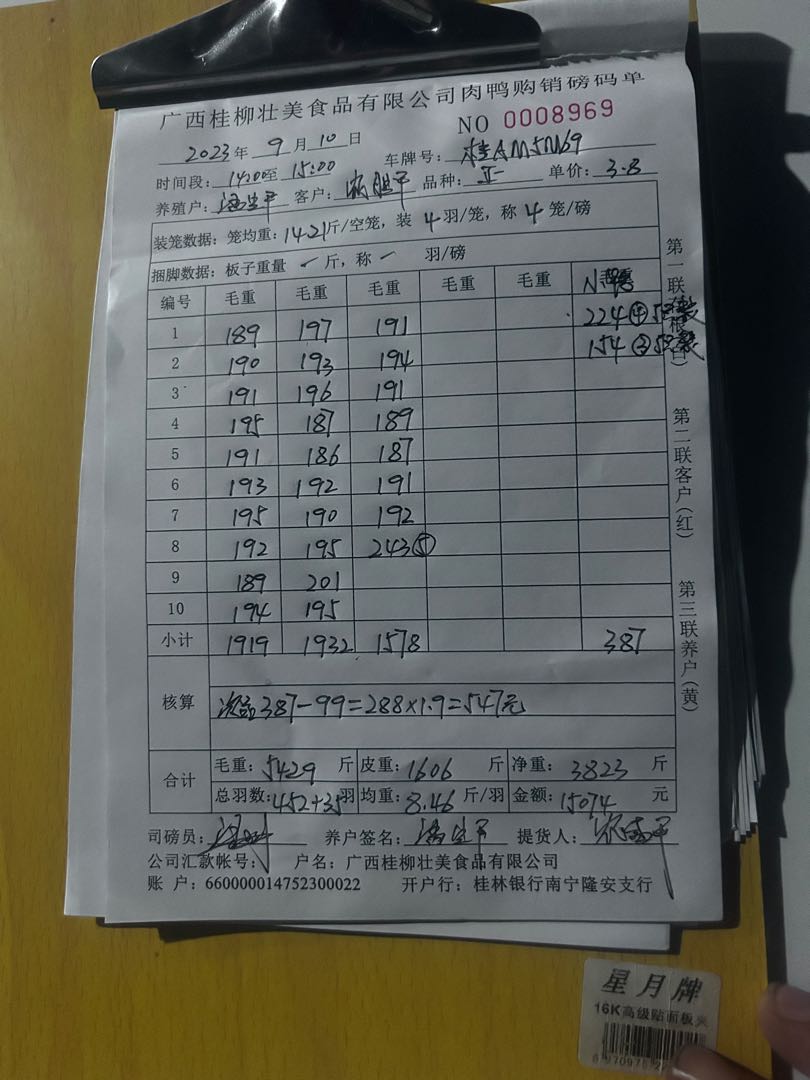 广西桂柳壮美食品有限公司肉鸭购销磅码单
NO 0008969
2023年 9月 10日
时间段：14:00至 15:00 车牌号：桂AM5M69
养殖户： 客户： 品种：正 单价：3.8
装笼数据：笼均重：14.21斤/空笼，装 4羽/笼，称 4 笼/磅
捆脚数据：板子重量 斤，称 羽/磅
编号 毛重 毛重 毛重 毛重 毛重
1 189 197 191 224④
2 190 193 194 154③
3 191 196 191
4 195 187 189
5 191 186 187
6 193 192 191
7 195 190 192
8 192 195 243⑤
9 189 201
10 194 195
小计 1919 1932 1578 387
核算 次品387-99=288×1.9=547元
合计 毛重：5429 斤 皮重：1606 斤 净重：3823 斤
总羽数：452+35羽 均重：8.46 斤/羽 金额：15074 元
司磅员： 养户签名： 提货人：
公司汇款帐号： 户名：广西桂柳壮美食品有限公司
账 户：660000014752300022 开户行：桂林银行南宁隆安支行
第一联
第二联客户(红)
第三联养户(黄)
星月牌
16K高级贴面板夹